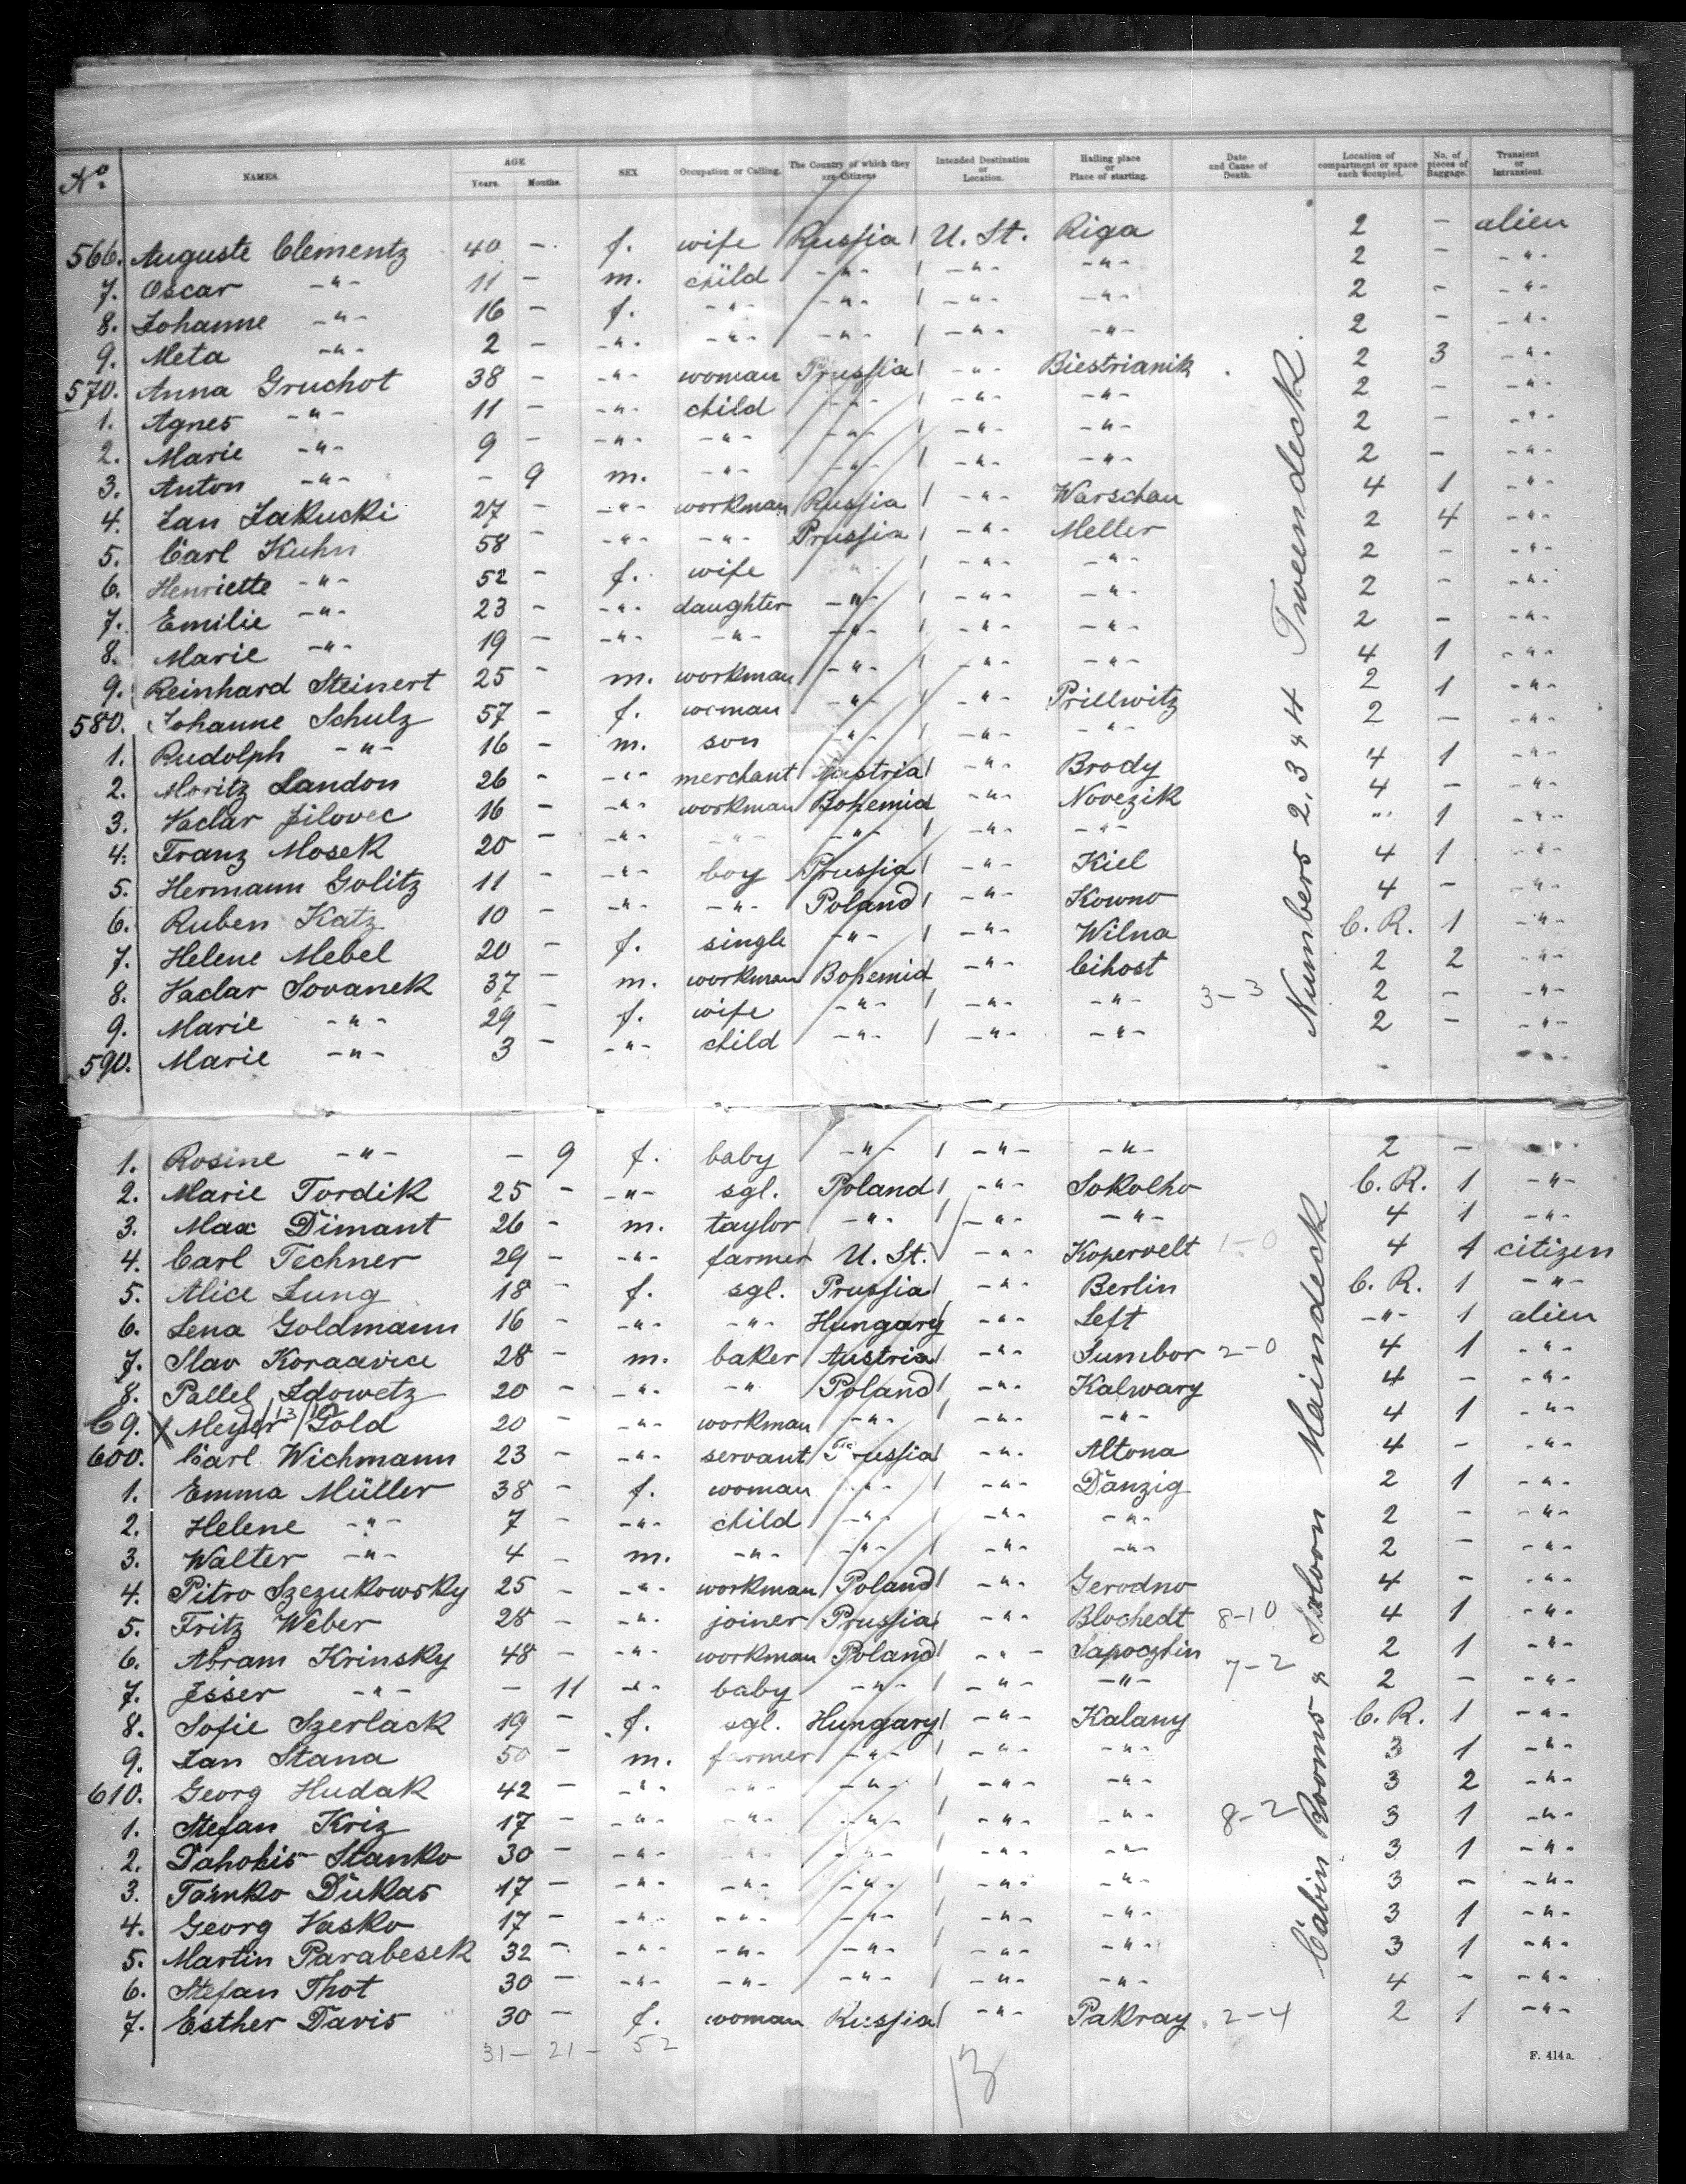 No. NAMES. AGE Years. Months. SEX Occupation or Calling. The Country of which they are Citizens Intended Destination or Location. Hailing place or Place of starting. Date and Cause of Death. Location of compartment or space each occupied. No. of pieces of Baggage. Transient or Intransient.
566. Auguste Clementz 40 - f. wife Russia U. St. Riga 2 - alien
7. Oscar -"- 11 - m. child -"- -"- -"- 2 - -"-
8. Johanne -"- 16 - f. -"- -"- -"- -"- 2 - -"-
9. Meta -"- 2 - -"- -"- -"- -"- -"- 2 - -"-
570. Anna Gruchot 38 - -"- woman Prussia -"- Biestrianik 2 3 -"-
1. Agnes -"- 11 - -"- child -"- -"- -"- 2 - -"-
2. Marie -"- 9 - -"- -"- -"- -"- -"- 2 - -"-
3. Anton -"- - 9 m. -"- -"- -"- -"- 2 - -"-
4. Jan Jakucki 27 - -"- workman Russia -"- Warschau 4 1 -"-
5. Carl Kuhn 58 - -"- -"- Prussia -"- Meller 2 4 -"-
6. Henriette -"- 52 - f. wife -"- -"- -"- 2 - -"-
7. Emilie -"- 23 - -"- daughter -"- -"- -"- 2 - -"-
8. Marie -"- 19 - -"- -"- -"- -"- -"- 2 - -"-
9. Reinhard Steinert 25 - m. workman -"- -"- -"- 4 1 -"-
580. Johanne Schulz 57 - f. woman -"- -"- Prillwitz 2 1 -"-
1. Rudolph -"- 16 - m. son -"- -"- -"- 2 - -"-
2. Moritz Landon 26 - -"- merchant Austria -"- Brody 4 1 -"-
3. Vaclav Jilovec 16 - -"- workman Bohemia -"- Novezik 4 - -"-
4. Franz Mosek 20 - -"- -"- -"- -"- -"- -"- 1 -"-
5. Hermann Golitz 11 - -"- boy Prussia -"- Kiel 4 1 -"-
6. Ruben Katz 10 - -"- -"- Poland -"- Kowno 4 - -"-
7. Helene Mebel 20 - f. single -"- -"- Wilna C. R. 1 -"-
8. Vaclav Sovanek 37 - m. workman Bohemia -"- Cihost 2 2 -"-
9. Marie -"- 29 - f. wife -"- -"- -"- 3-3 2 - -"-
590. Marie -"- 3 - -"- child -"- -"- -"- 2 - -"-
Numbers 2, 3 & 4 Tweendeck.
1. Rosine -"- - 9 f. baby -"- -"- -"- 2 - -"-
2. Marie Tordik 25 - -"- sgl. Poland -"- Sokolho C. R. 1 -"-
3. Max Dimant 26 - m. taylor -"- -"- -"- 4 1 -"-
4. Carl Techner 29 - -"- farmer U. St. -"- Kopervelt 1-0 4 1 citizen
5. Alice Jung 18 - f. sgl. Prussia -"- Berlin C. R. 1 -"-
6. Lena Goldmann 16 - -"- -"- Hungary -"- Left -"- 1 alien
7. Slav Koraavice 28 - m. baker Austria -"- Sumbor 2-0 4 1 -"-
8. Pallel Idowetz 20 - -"- -"- Poland -"- Kalwary 4 - -"-
C 9. X Meyer Gold 20 - -"- workman -"- -"- -"- 4 1 -"-
600. Carl Wichmann 23 - -"- servant Prussia -"- Altona 4 - -"-
1. Emma Müller 38 - f. woman -"- -"- Danzig 2 1 -"-
2. Helene -"- 7 - -"- child -"- -"- -"- 2 - -"-
3. Walter -"- 4 - m. -"- -"- -"- -"- 2 - -"-
4. Pitro Szezukowsky 25 - -"- workman Poland -"- Gerodno 4 - -"-
5. Fritz Weber 28 - -"- joiner Prussia -"- Blochedt 8-10 4 1 -"-
6. Abram Krinsky 48 - -"- workman Poland -"- Sapoczkin 7-2 2 1 -"-
7. Jsser -"- - 11 -"- baby -"- -"- -"- 2 - -"-
8. Sofie Szerlack 19 - f. sgl. Hungary -"- Kalany C. R. 1 -"-
9. Jan Stana 50 - m. farmer -"- -"- -"- 3 1 -"-
610. Georg Hudak 42 - -"- -"- -"- -"- -"- 3 2 -"-
1. Stefan Kriz 17 - -"- -"- -"- -"- -"- 8-2 3 1 -"-
2. Dahohis Stanko 30 - -"- -"- -"- -"- -"- 3 1 -"-
3. Tamko Dukas 17 - -"- -"- -"- -"- -"- 3 - -"-
4. Georg Vasko 17 - -"- -"- -"- -"- -"- 3 1 -"-
5. Martin Parabesek 32 - -"- -"- -"- -"- -"- 3 1 -"-
6. Stefan Thot 30 - -"- -"- -"- -"- -"- 4 - -"-
7. Esther Davis 30 - f. woman Russia -"- Pakray 2-4 2 1 -"-
Cabin Rooms & Saloon Maindeck
31- 21- 52
13
F. 414 a.